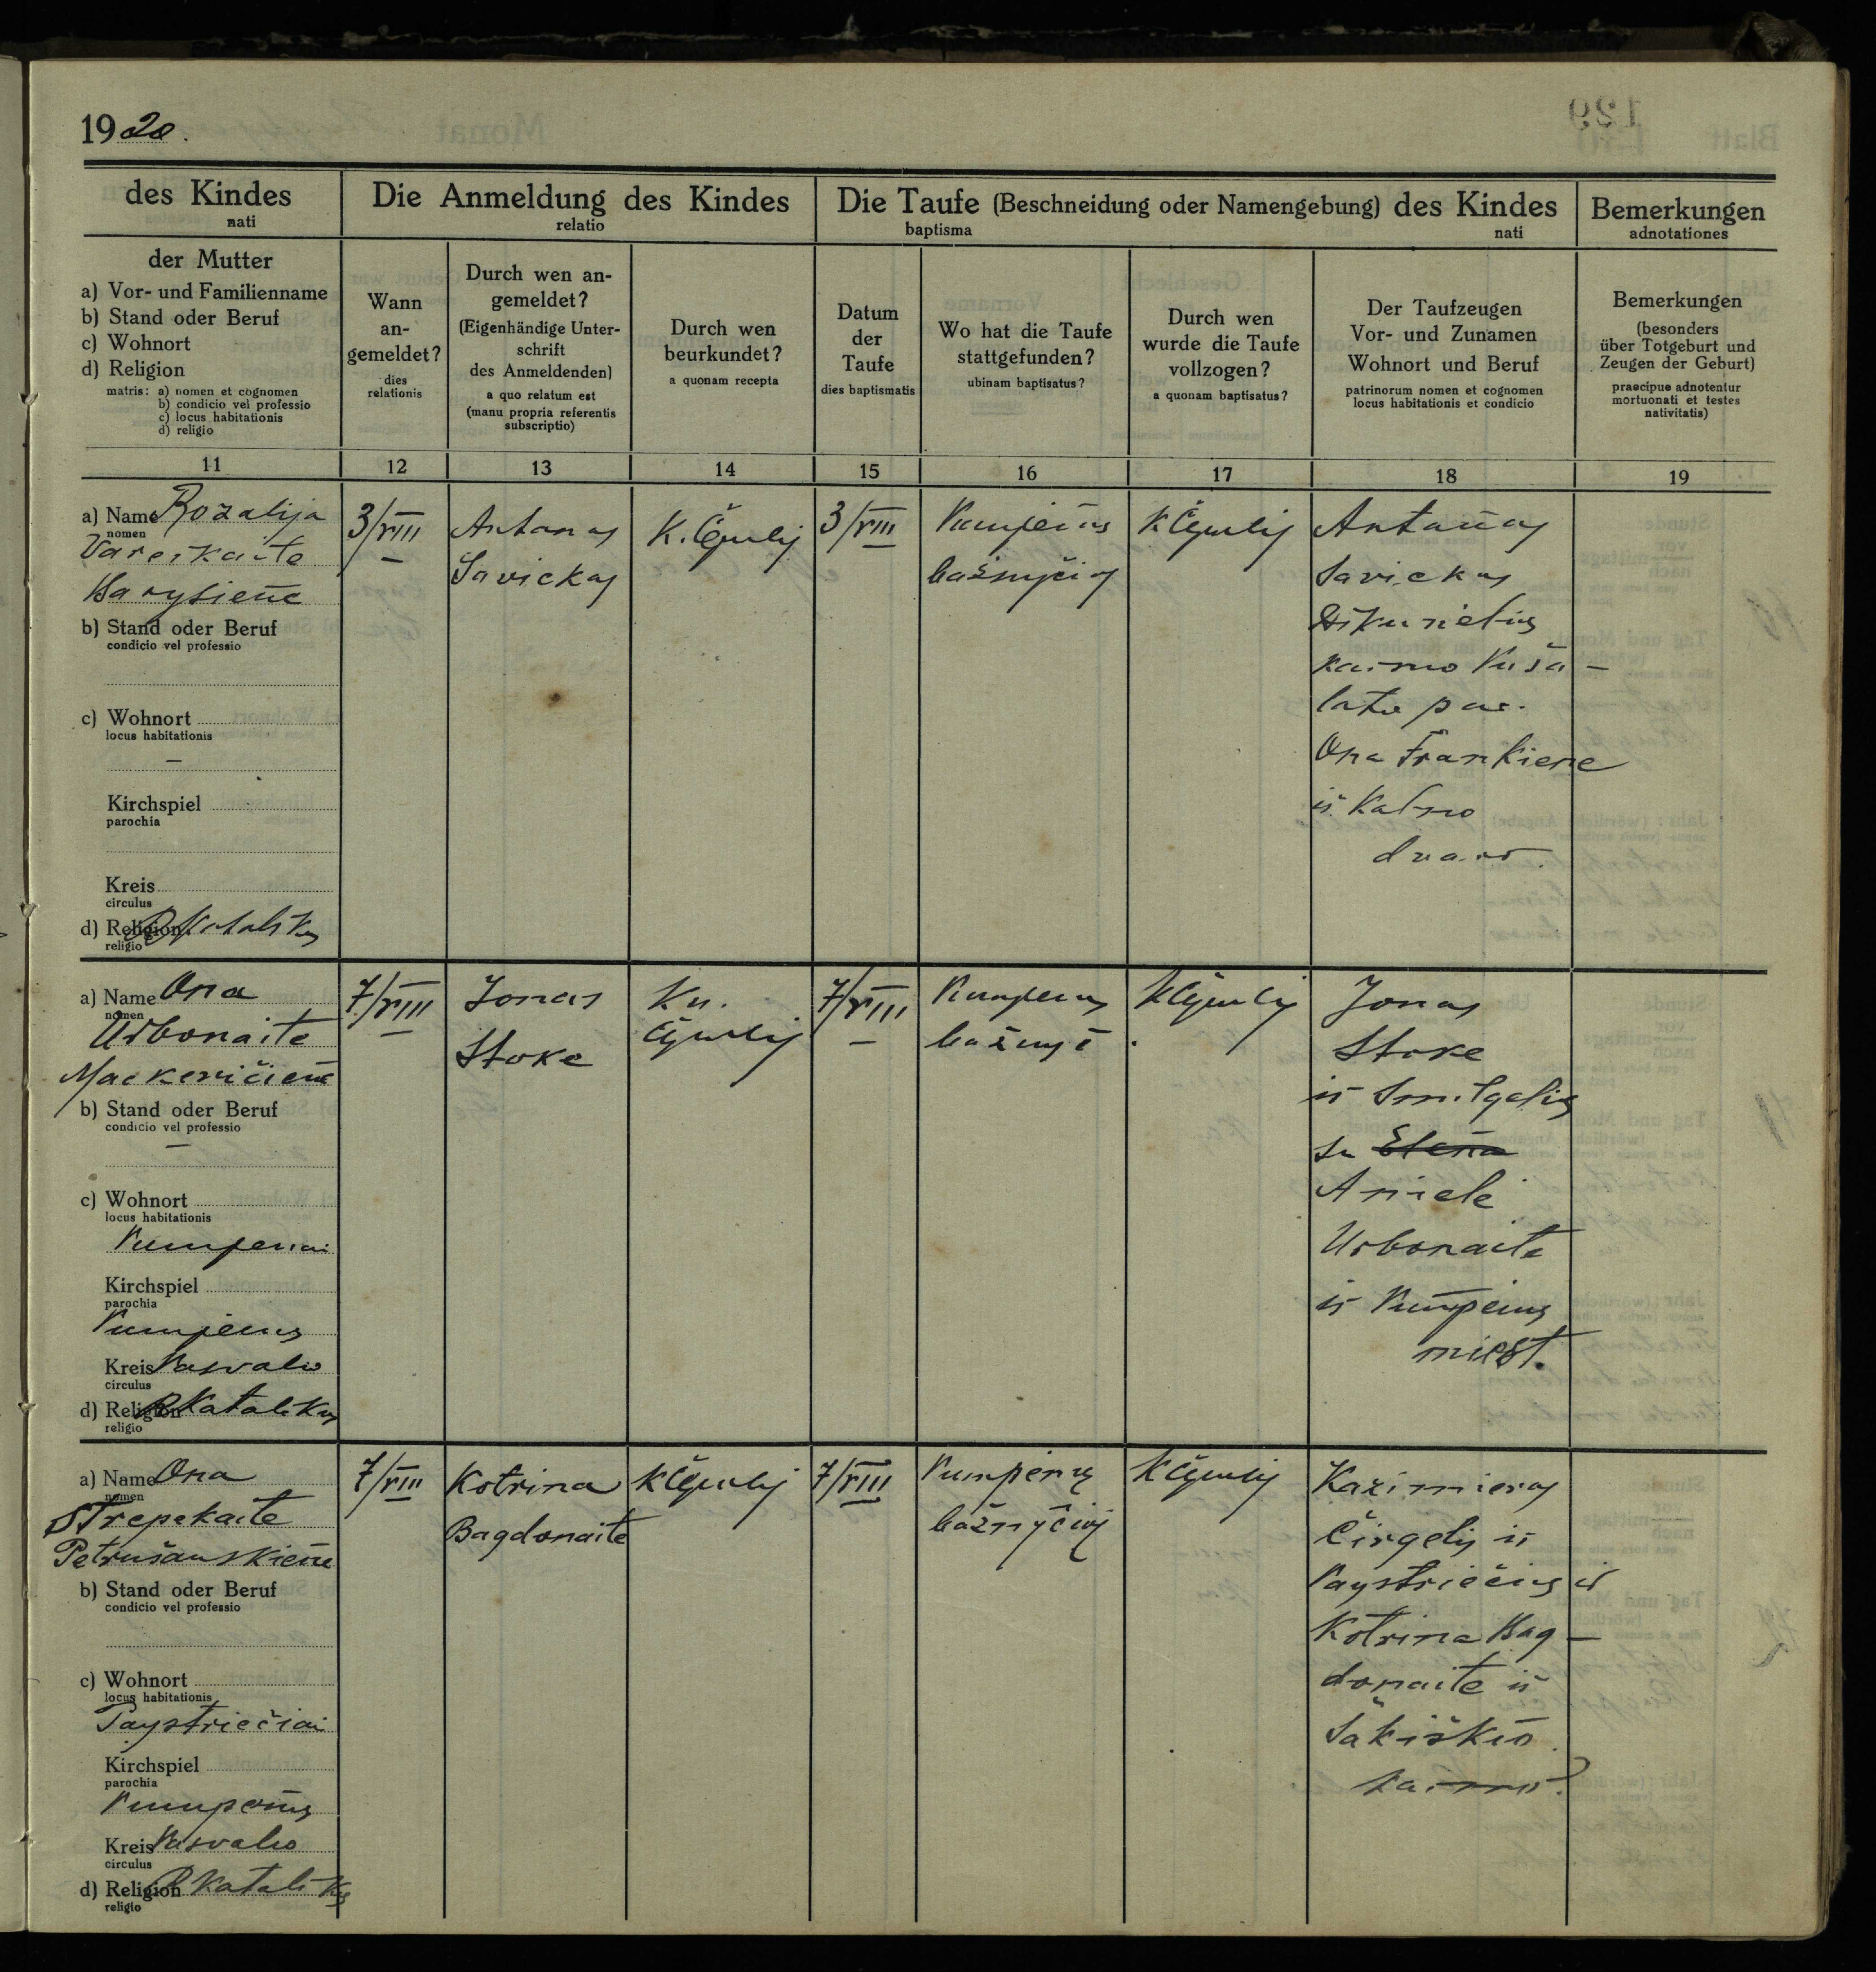 1920.
des Kindes
nati
Die Anmeldung des Kindes
relatio
Die Taufe (Beschneidung oder Namengebung) des Kindes
baptisma nati
Bemerkungen
adnotationes
der Mutter
a) Vor- und Familienname
b) Stand oder Beruf
c) Wohnort
d) Religion
matris: a) nomen et cognomen
b) condicio vel professio
c) locus habitationis
d) religio
Wann
an-
gemeldet?
dies
relationis
Durch wen an-
gemeldet?
(Eigenhändige Unter-
schrift
des Anmeldenden)
a quo relatum est
(manu propria referentis
subscriptio)
Durch wen
beurkundet?
a quonam recepta
Datum
der
Taufe
dies baptismatis
Wo hat die Taufe
stattgefunden?
ubinam baptisatus?
Durch wen
wurde die Taufe
vollzogen?
a quonam baptisatus?
Der Taufzeugen
Vor- und Zunamen
Wohnort und Beruf
patrinorum nomen et cognomen
locus habitationis et condicio
Bemerkungen
(besonders
über Totgeburt und
Zeugen der Geburt)
praecipue adnotentur
mortuonati et testes
nativitatis)
11 12 13 14 15 16 17 18 19
a) Name Rozalija
nomen
Vareikaite
b) Stand oder Beruf
condicio vel professio
c) Wohnort
locus habitationis
—
Kirchspiel
parochia
Kreis
circulus
d) Religion R Katalikų
religio
3/VIII
Antanas
Savickas
3/VIII
bažnyčioj
Antanas
Savickas
kaimo Puša-
loto par.
Ona Frankiene
iš Kalno
dvaro.
a) Name Ona
nomen
Urbonaite
Mackevičienė
b) Stand oder Beruf
condicio vel professio
—
c) Wohnort
locus habitationis
Pumpenai
Kirchspiel
parochia
Pumpenų
Kreis Pasvalio
circulus
d) Religion R Katalikų
religio
7/VIII
Jonas
Stoke
Kn.
7/VIII
Pumpenų
bažnyč.
Jonas
Stoke
iš Smilgelių
su Elena
Anielė
Urbonaite
iš Pumpenų
miest.
a) Name Ona
nomen
Strepekaite
Petrušauskienė
b) Stand oder Beruf
condicio vel professio
c) Wohnort
locus habitationis
Paystriečiai
Kirchspiel
parochia
Pumpenų
Kreis Pasvalio
circulus
d) Religion R Katalikų
religio
7/VIII
Kotrina
Bagdonaite
7/VIII
Pumpenų
bažnyčioj
Kazimieras
Čirgelis iš
Paystriečių ir
Kotrina Bag-
donaite iš
Šakiškio
kaimo.